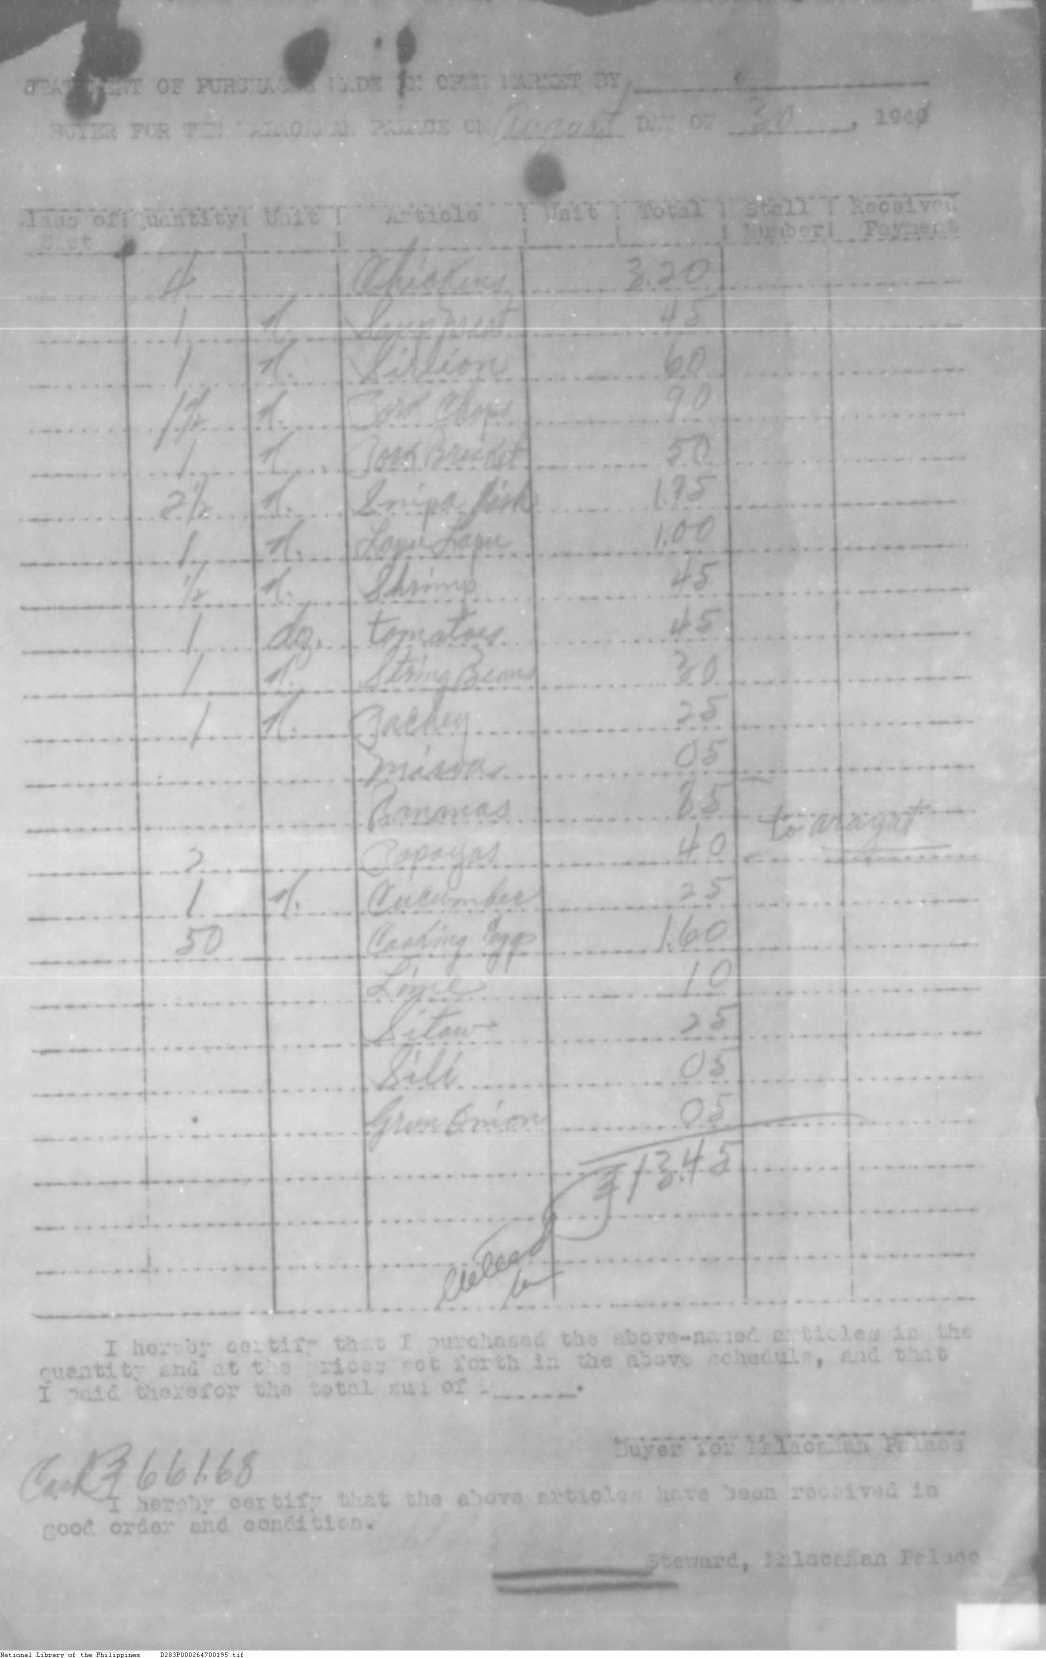 STATEMENT OF PURCHASES MADE IN OPEN MARKET BY
BUYER FOR THE MALACAÑAN PALACE ON August DAY OF 30, 194
Class of Quantity Unit Article Unit Total Stall Received
Number Payment
4 Chickens 3.20
1 k. 45
1 k. Sirlion 60
1½ k. Pork Chops 90
1 k. Pork Brisket 50
2½ k. Snipa fish 1.75
1 k. Lapu Lapu 1.00
½ k. Shrimp 45
1 dz. tomatoes 45
1 k. String Beans 30
1 k. Pachey 25
Miswa 05
Bananas 85
to arayat
2 Papayas 40
1 k. Cucumber 25
50 Cooking Eggs 1.60
Lime 10
Sitaw 25
Sili 05
Green Onion 05
₱13.45
I hereby certify that I purchased the above-named articles in the
quantity and at the prices set forth in the above schedule, and that
I paid therefor the total sum of ₱______.
Buyer for Malacañan Palace
Cash ₱661.68
I hereby certify that the above articles have been received in
good order and condition.
Steward, Malacañan Palace
National Library of the Philippines D283P000264700195.tif